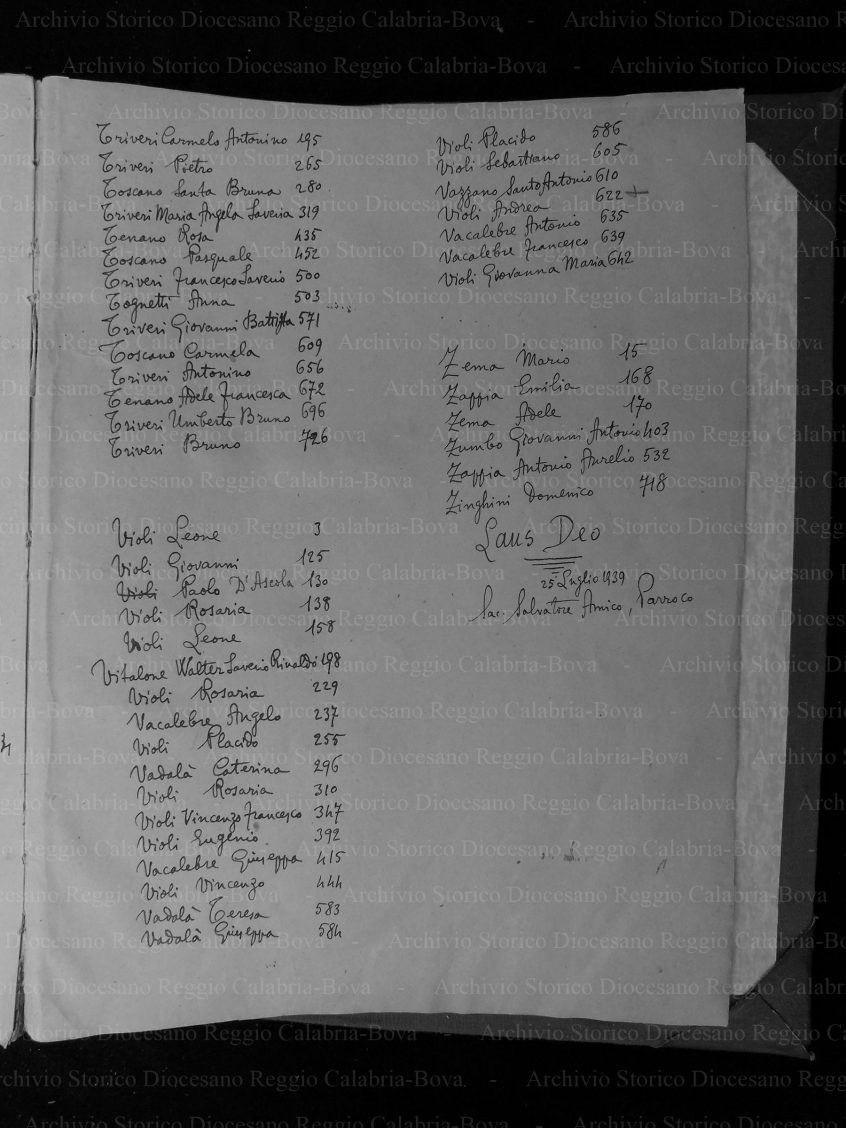 Triveri Carmelo Antonino 195
Triveri Pietro 265
Toscano Santa Bruna 280
Triveri Maria Angela Saveria 319
Tenano Rosa 435
Toscano Pasquale 452
Triveri Francesco Saverio 500
Tognetti Anna 503
Triveri Giovanni Battista 571
Toscano Carmela 609
Triveri Antonino 656
Tenano Adele Francesca 672
Triveri Umberto Bruno 696
Triveri Bruno 726
Violi Leone 3
Violi Giovanni 125
Violi Paolo D'Ascola 130
Violi Rosaria 138
Violi Leone 158
Vitalone Walter Saverio Rinaldo 198
Violi Rosaria 229
Vacalebre Angelo 237
Violi Placido 255
Vadalà Caterina 296
Violi Rosaria 310
Violi Vincenzo Francesco 347
Violi Eugenio 392
Vacalebre Giuseppa 415
Violi Vincenzo 444
Vadalà Teresa 583
Vadalà Giuseppa 584
Violi Placido 586
Violi Sebastiano 605
Vazzano Santo Antonio 610
Violi Andrea 622
Vacalebre Antonio 635
Vacalebre Francesco 639
Violi Giovanna Maria 642
Zema Mario 15
Zappia Emilia 168
Zema Adele 170
Zumbo Giovanni Antonio 403
Zappia Antonio Aurelio 532
Zinghini Domenico 718
Laus Deo
25 Luglio 1939
Sac. Salvatore Amico, Parroco
Archivio Storico Diocesano Reggio Calabria-Bova